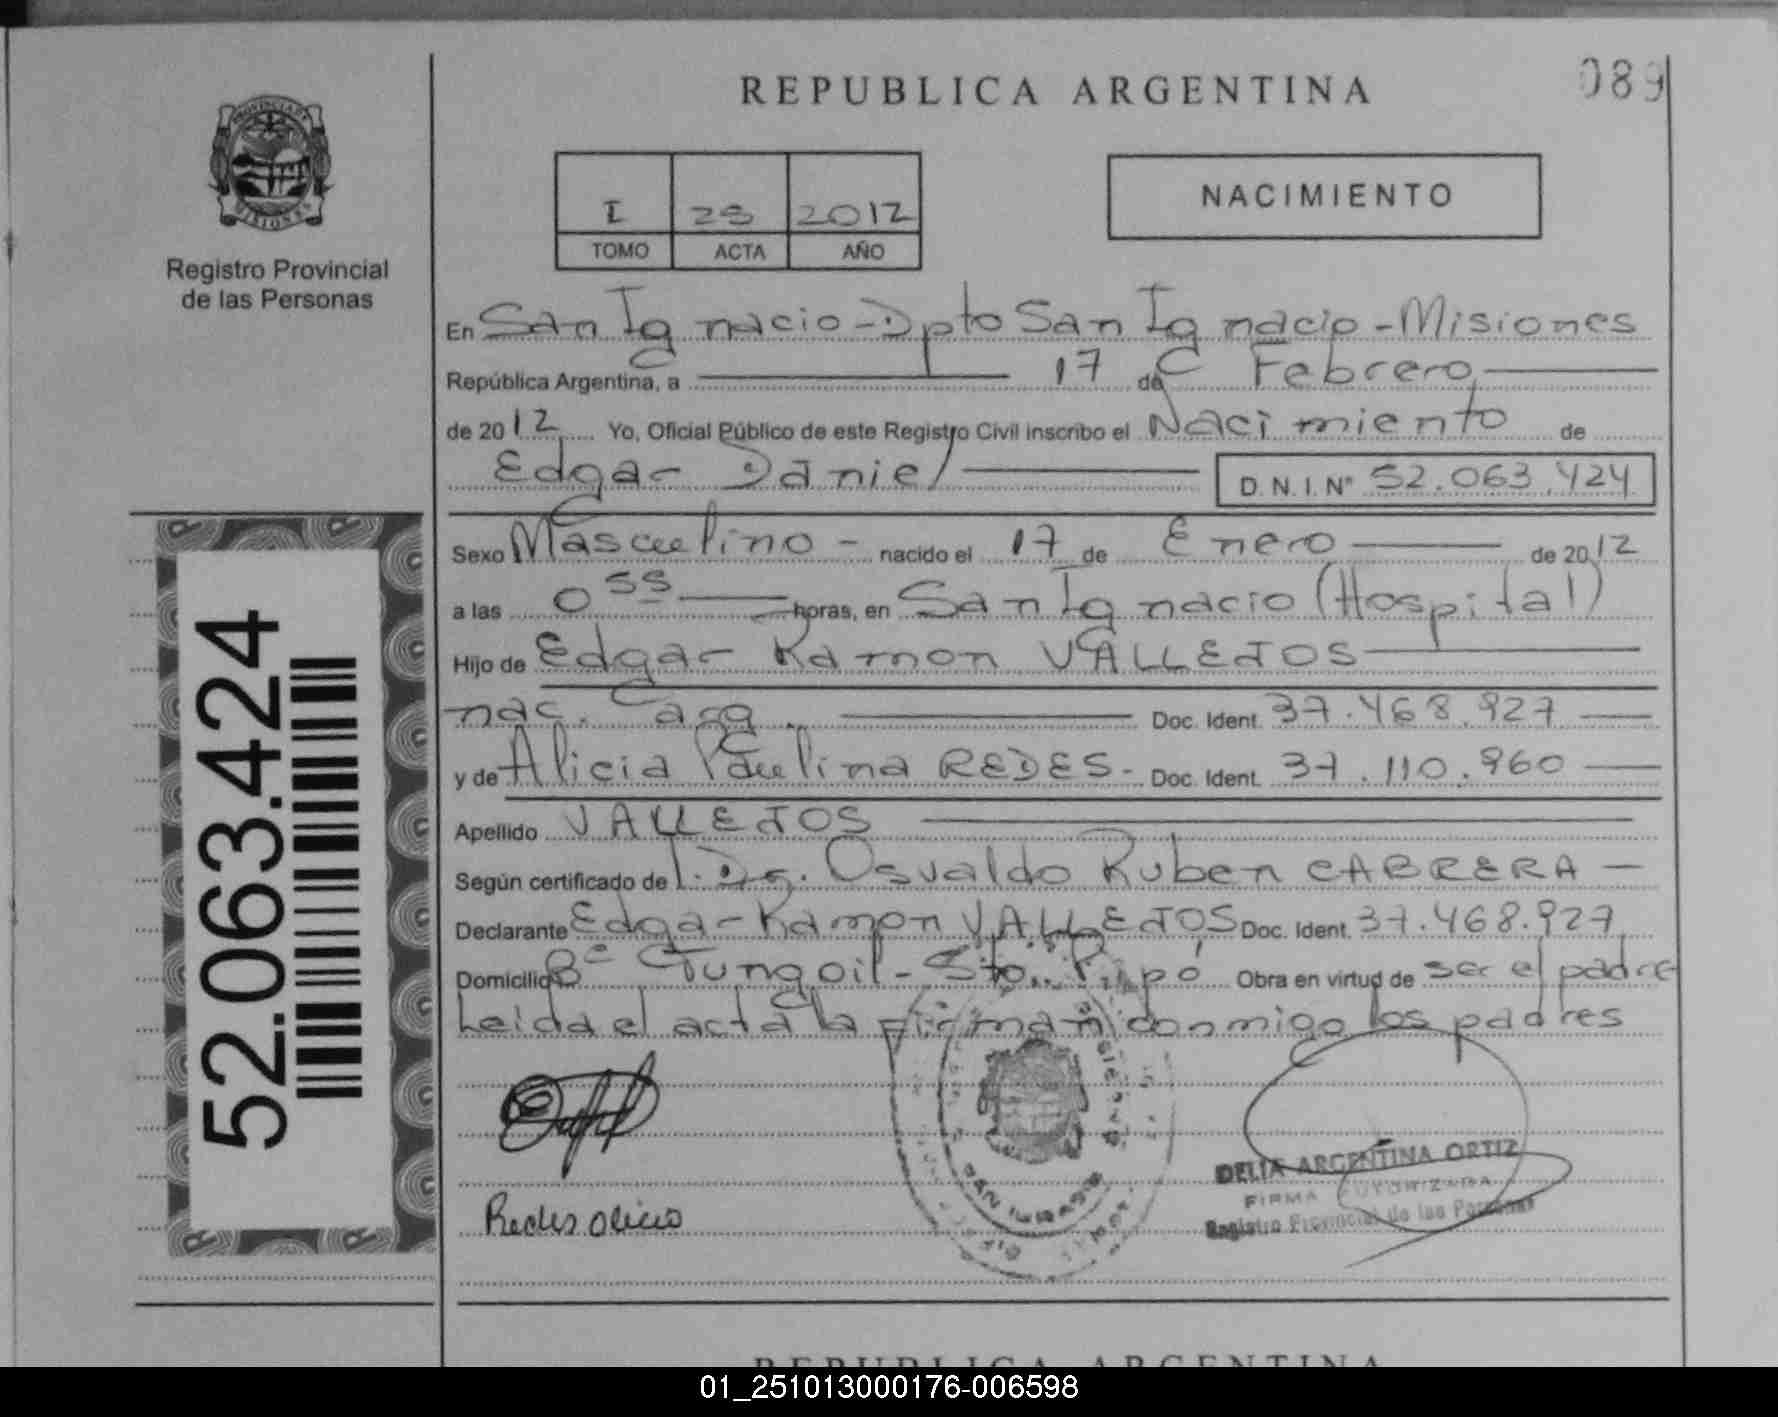 REPUBLICA ARGENTINA
089
PROVINCIA DE
MISIONES
Registro Provincial
de las Personas
I 25 2012
TOMO ACTA AÑO
NACIMIENTO
En San Ignacio - Dpto San Ignacio - Misiones
República Argentina, a 17 de Febrero
de 2012 Yo, Oficial Público de este Registro Civil inscribo el Nacimiento de
Edgar Daniel D.N.I. Nº 52.063.424
Sexo Masculino - nacido el 17 de Enero de 2012
a las 0 55 horas, en San Ignacio (Hospital)
Hijo de Edgar Ramon VALLEJOS
nac. Arg. Doc. Ident. 37.468.927
y de Alicia Paulina REDES - Doc. Ident. 37.110.960
Apellido VALLEJOS
Según certificado del Dr. Osvaldo Ruben CABRERA
Declarante Edgar Ramon VALLEJOS Doc. Ident. 37.468.927
Domicilio Bº Tungoil - Sto. Pipó Obra en virtud de ser el padre
Leida el acta la firman conmigo los padres
52.063.424
Redes Alicia
DELIA ARGENTINA ORTIZ
FIRMA AUTORIZADA
Registro Provincial de las Personas
REPUBLICA ARGENTINA
01_251013000176-006598